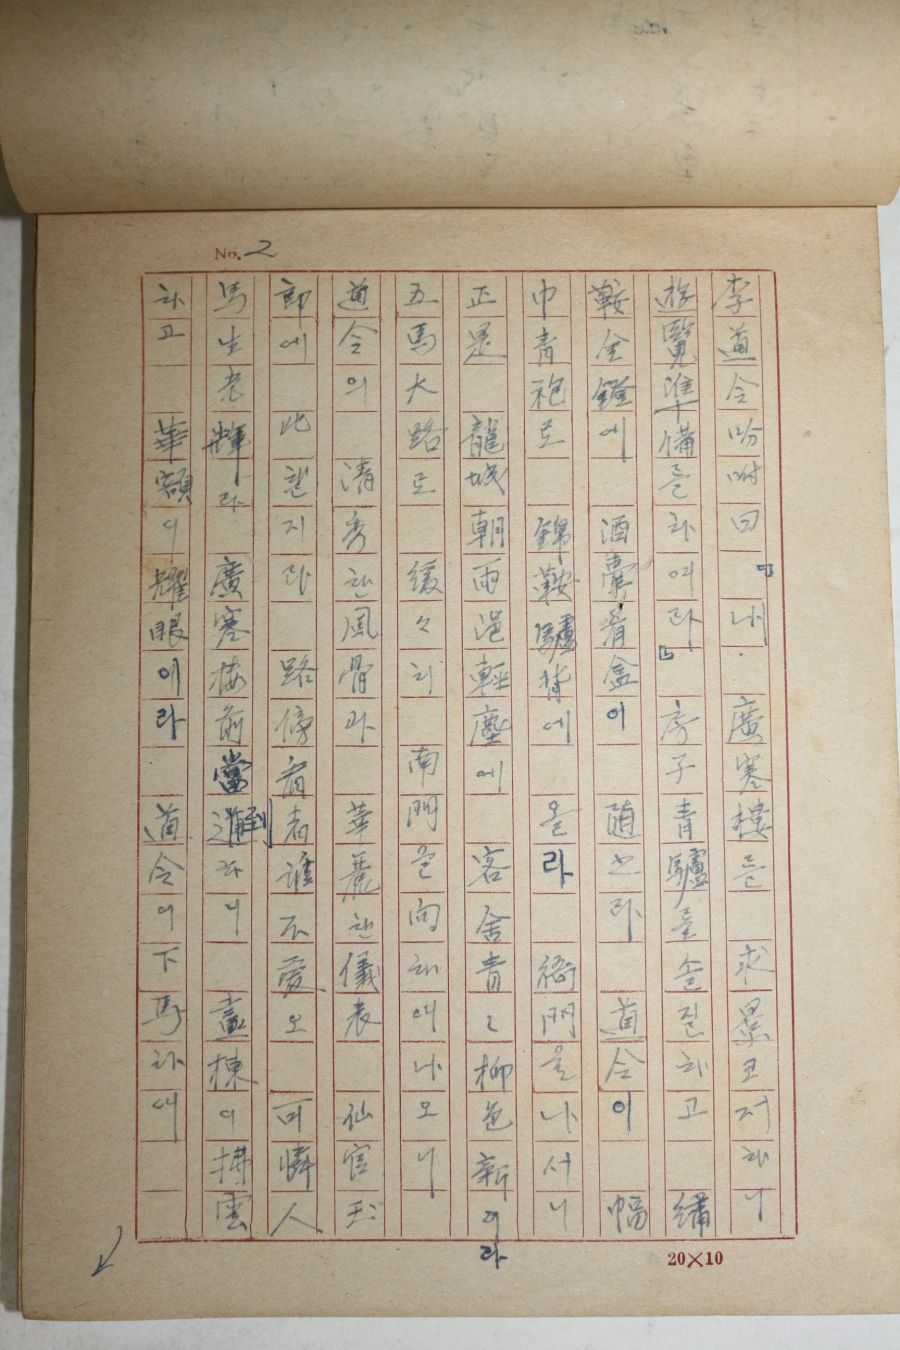 No. 2
李道令吩咐曰 『내 廣寒樓를 求景코저하니
遊覽準備를 하여라』 房子青驢를 솔질하고 繡
鞍金鐙에 酒囊肴盒이 随느라 道令이 幅
巾青袍로 錦鞍驢背에 올라 衙門을 나서니
正是 龍城朝雨浥輕塵에 客舍青々柳色新이라
五馬大路로 緩々히 南門을 向하여나오니
道令의 清秀한風骨과 華麗한儀表 仙官玉
郎에 比할지라 路傍看者誰不愛오 可憐人
馬生老輝라 廣寒樓前當到하니 畫棟이拂雲
하고 華額이耀眼이라 道令이下馬하여
20×10